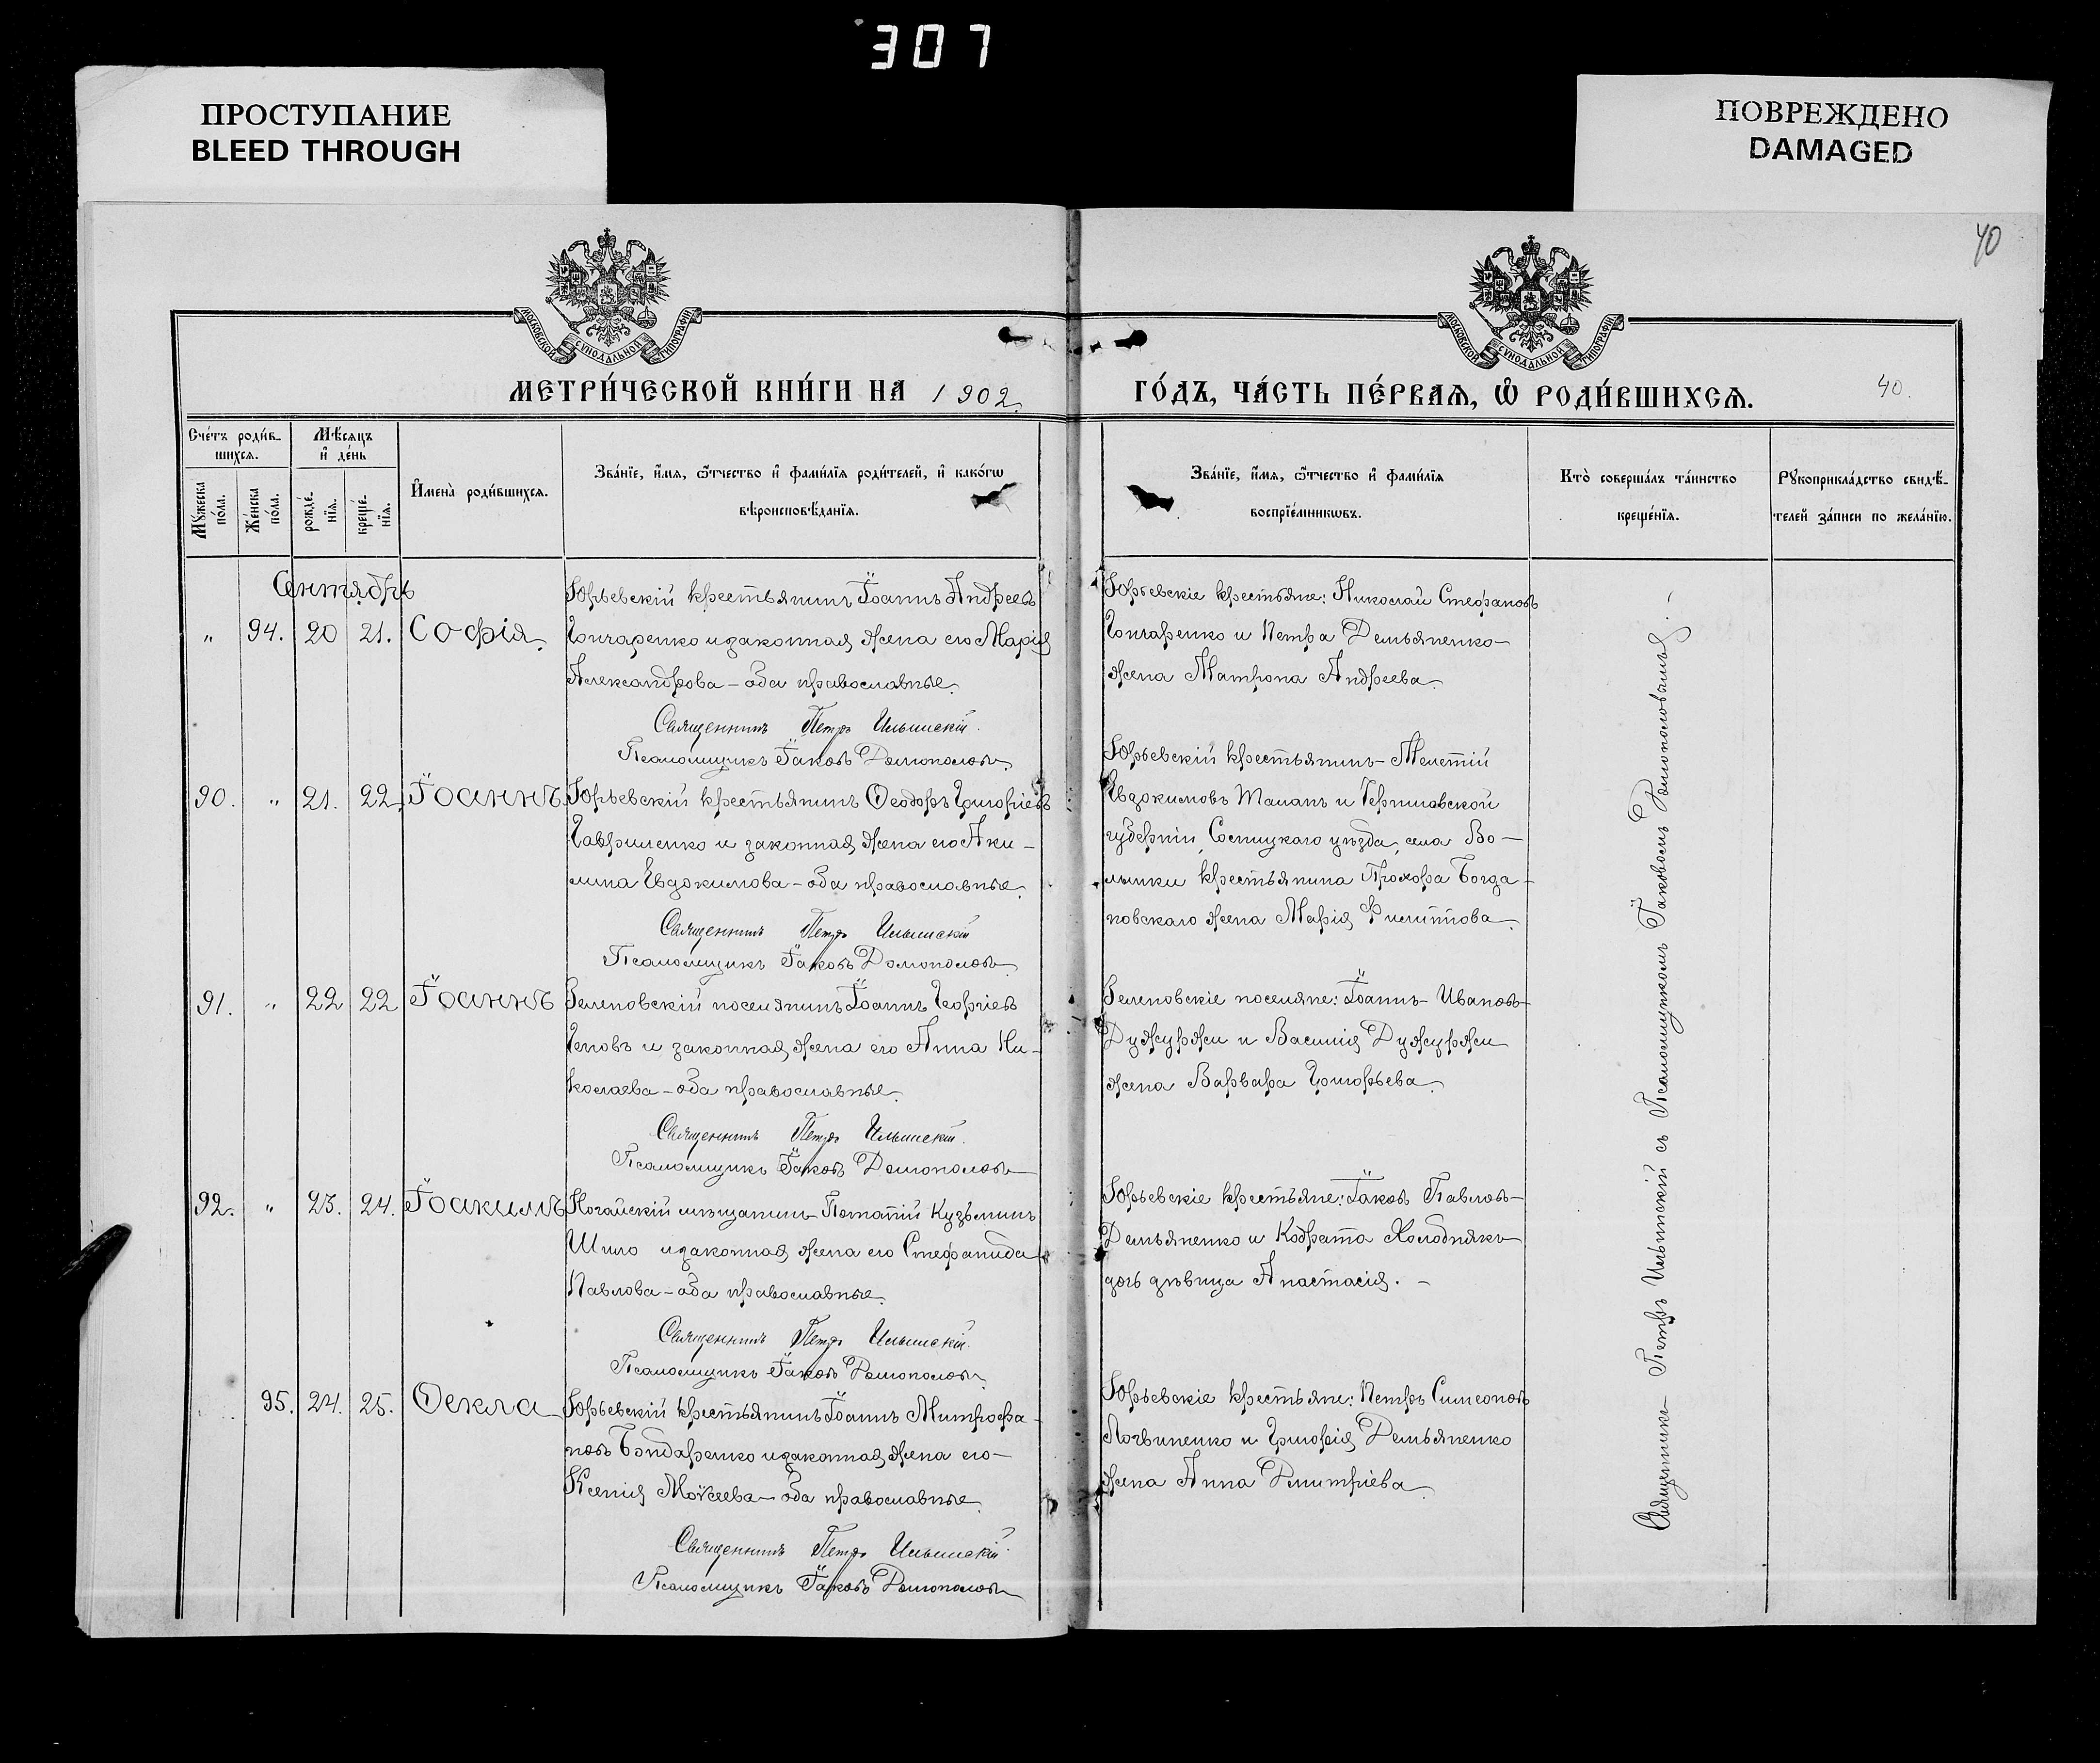 307
ПРОСТУПАНИЕ
BLEED THROUGH
ПОВРЕЖДЕНО
DAMAGED
40
МОСКОВСКОЙ СУНОДАЛЬНОЙ ТИПОГРАФІИ
МОСКОВСКОЙ СУНОДАЛЬНОЙ ТИПОГРАФІИ
МЕТРИ́ЧЕСКОЙ КНИ́ГИ НА 1902.
ГО́ДЪ, ЧА́СТЬ ПЕ́РВАѦ, Ѡ РОДИ́ВШИХСѦ.
40.
Сче́тъ роди́в-
шихсѧ.
Мѣсѧцъ
и де́нь
Мꙋжеска
по́ла.
Же́нска
по́ла.
рожде́-
нїѧ.
креще́-
нїѧ.
Имена̀ роди́вшихсѧ.
Зва́нїе, и́мѧ, ѻ́тчество и фами́лїѧ роди́телей, и како́гѡ
вѣроисповѣ́данїѧ.
Зва́нїе, и́мѧ, ѻ́тчество и фами́лїѧ
воспрїе́мникѡвъ.
Кто̀ соверша́лъ та́инство
креще́нїѧ.
Рꙋкоприкла́дство свидѣ́-
телей за́писи по жела́нїю.
Сентябрь
" 94. 20 21. Софія.
Юрьевскій крестьянинъ Іоаннъ Андреевъ
Гончаренко и законная жена его Марія
Александрова – оба православные.
Священникъ Петръ Ильинскій.
Псаломщикъ Іаковъ Домополовъ.
Юрьевскіе крестьяне: Николай Стефановъ
Гончаренко и Петра Демьяненко
жена Матрона Андреева.
90. " 21. 22. Іоаннъ.
Юрьевскій крестьянинъ Ѳеодоръ Григоріевъ
Гавриленко и законная жена его Аки-
лина Евдокимова – оба православные.
Священникъ Петръ Ильинскій
Псаломщикъ Іаковъ Домополовъ
Юрьевскій крестьянинъ – Мелетій
Евдокимовъ Таманъ и Черниговской
губерніи, Сосницкаго уѣзда, села Во-
лынки крестьянина Прохора Богда-
новскаго жена Марія Филиппова.
91. " 22 22 Іоаннъ
Зеленовскій поселянинъ Іоаннъ Георгіевъ
Геновъ и законная жена его Анна Ни-
колаева – оба православные.
Священникъ Петръ Ильинскій.
Псаломщикъ Іаковъ Домополовъ
Зеленовскіе поселяне: Іоаннъ Ивановъ
Дужуржи и Василія Дужуржи
жена Варвара Григорьева.
92. " 23. 24. Іоакимъ
Ногайскій мѣщанинъ Потапій Кузьминъ
Шило и законная жена его Стефанида
Павлова – оба православные.
Священникъ Петръ Ильинскій.
Псаломщикъ Іаковъ Домополовъ.
Юрьевскіе крестьяне: Іаковъ Павловъ
Демьяненко и Кодрата Холоднякъ
дочь дѣвица Анастасія. –
95. 24. 25. Ѳекла
Юрьевскій крестьянинъ Іоаннъ Митрофа-
новъ Бондаренко и законная жена его
Ксенія Моѵсеева – оба православные.
Священникъ Петръ Ильинскій.
Псаломщикъ Іаковъ Домополовъ
Юрьевскіе крестьяне: Петръ Симеоновъ
Логвиненко и Григорія Демьяненко
жена Анна Димитріева.
Священникъ Петръ Ильинскій съ Псаломщикомъ Іаковомъ Домополовымъ.